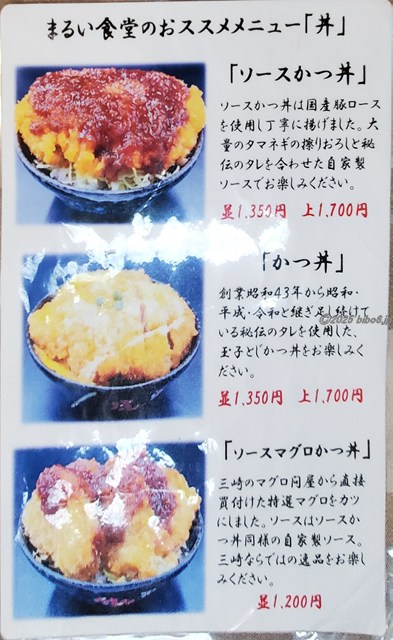 まるい食堂のおススメメニュー「丼」
「ソースかつ丼」
ソースかつ丼は国産豚ロース
を使用し丁寧に揚げました。大
量のタマネギの擦りおろしと秘
伝のタレを合わせた自家製
ソースでお楽しみください。
並1,350円 上1,700円
「かつ丼」
創業昭和43年から昭和・
平成・令和と継ぎ足し続けて
いる秘伝のタレを使用した、
玉子とじかつ丼をお楽しみく
ださい。
©2025 bibo6.jp
並1,350円 上1,700円
「ソースマグロかつ丼」
三崎のマグロ問屋から直接
買付けた特選マグロをカツ
にしました。ソースはソースか
つ丼同様の自家製ソース。
三崎ならではの逸品をお楽し
みください。
並1,200円